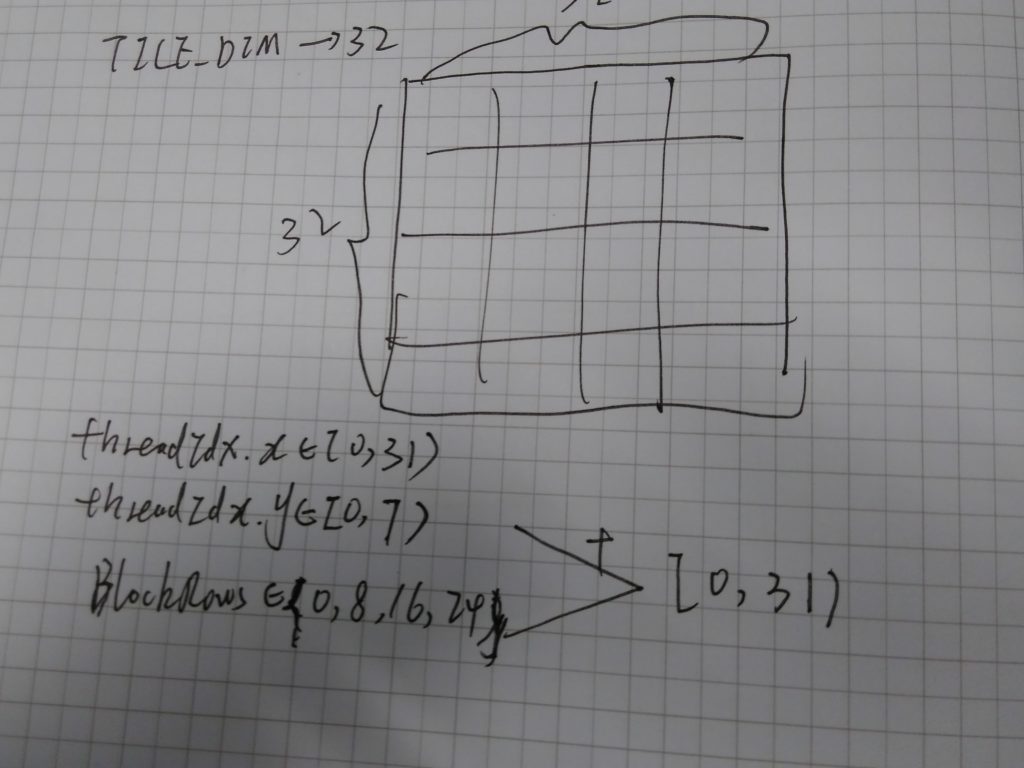 TILE_DIM → 32
32
threadIdx.x ∈ [0,31)
threadIdx.y ∈ [0,7)
+
BlockRows ∈ {0,8,16,24}
[0,31)